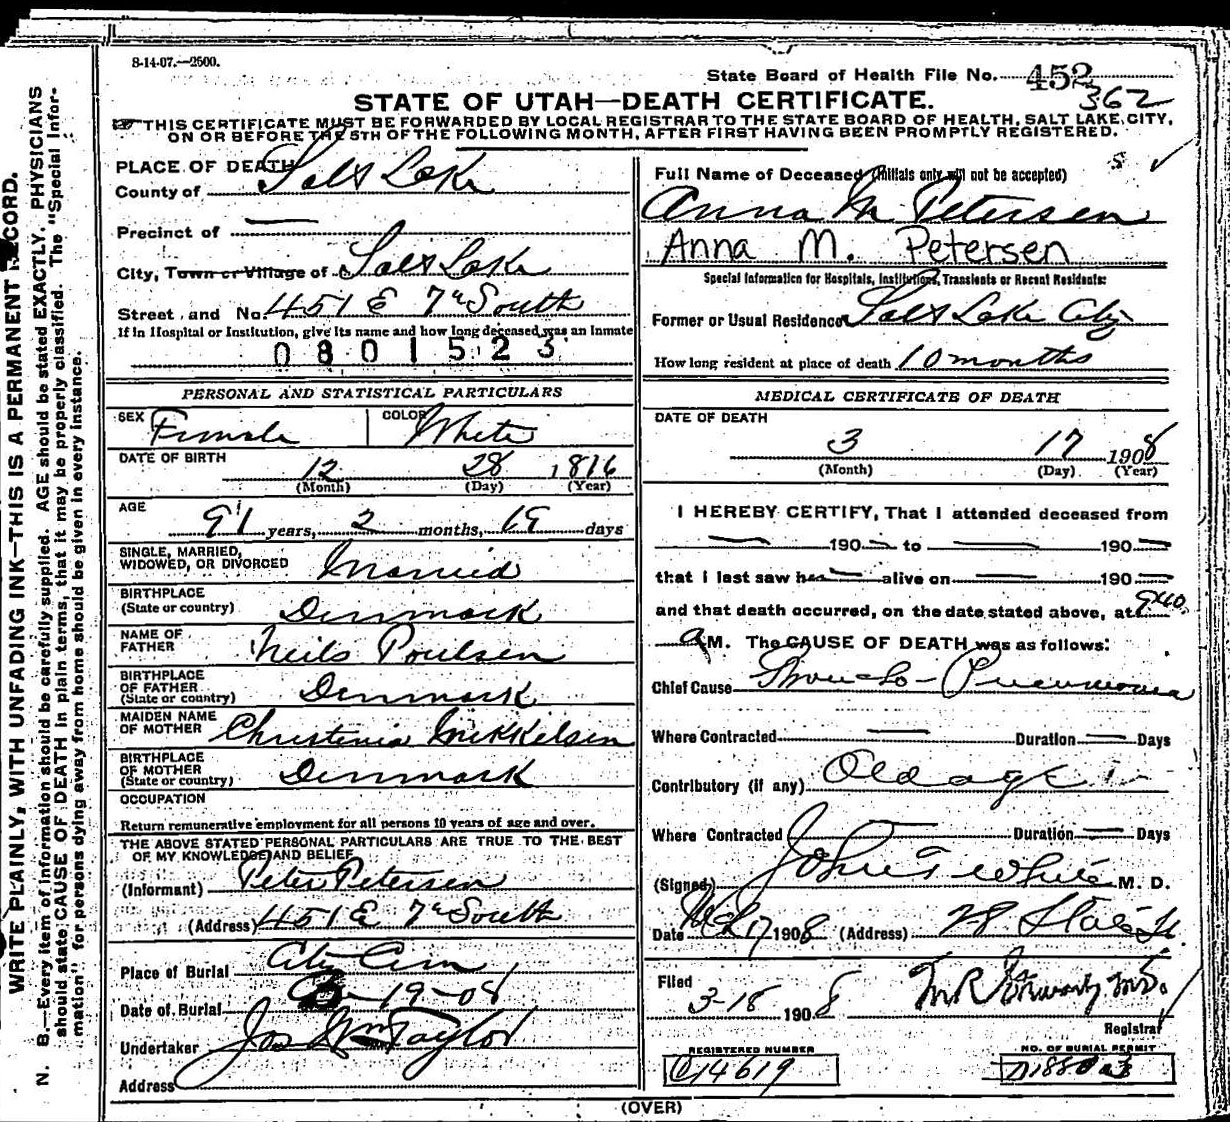 8-14-07.—2500.
State Board of Health File No. 452
362
STATE OF UTAH—DEATH CERTIFICATE.
THIS CERTIFICATE MUST BE FORWARDED BY LOCAL REGISTRAR TO THE STATE BOARD OF HEALTH, SALT LAKE CITY,
ON OR BEFORE THE 5TH OF THE FOLLOWING MONTH, AFTER FIRST HAVING BEEN PROMPTLY REGISTERED.
WRITE PLAINLY, WITH UNFADING INK—THIS IS A PERMANENT RECORD.
N. B.—Every item of information should be carefully supplied. AGE should be stated EXACTLY. PHYSICIANS
should state CAUSE OF DEATH in plain terms, that it may be properly classified. The "Special Infor-
mation" for persons dying away from home should be given in every instance.
PLACE OF DEATH
County of Salt Lake
Precinct of —
City, Town or Village of Salt Lake
Street and No. 451 E 7th South
If in Hospital or Institution, give its name and how long deceased was an Inmate
0801523
PERSONAL AND STATISTICAL PARTICULARS
SEX Female COLOR White
DATE OF BIRTH
12 28 1816
(Month) (Day) (Year)
AGE
91 years, 2 months, 19 days
SINGLE, MARRIED,
WIDOWED, OR DIVORCED Married
BIRTHPLACE
(State or country) Denmark
NAME OF
FATHER Neils Poulsen
BIRTHPLACE
OF FATHER
(State or country) Denmark
MAIDEN NAME
OF MOTHER Christinia Mikkelsen
BIRTHPLACE
OF MOTHER
(State or country) Denmark
OCCUPATION
Return remunerative employment for all persons 10 years of age and over.
THE ABOVE STATED PERSONAL PARTICULARS ARE TRUE TO THE BEST
OF MY KNOWLEDGE AND BELIEF
(Informant) Peter Petersen
(Address) 451 E 7th South
Place of Burial City Cem
Date of Burial 19-08
Undertaker Jos Wm Taylor
Address
Full Name of Deceased (Initials only will not be accepted)
Anna M Petersen
Anna M. Petersen
Special Information for Hospitals, Institutions, Transients or Recent Residents:
Former or Usual Residence Salt Lake City
How long resident at place of death 10 months
MEDICAL CERTIFICATE OF DEATH
DATE OF DEATH
3 17 1908
(Month) (Day) (Year)
I HEREBY CERTIFY, That I attended deceased from
— 190 — to — 190 —
that I last saw her — alive on — 190 —
and that death occurred, on the date stated above, at 9:40
A M. The CAUSE OF DEATH was as follows:
Chief Cause Broncho-Pneumonia
Where Contracted — Duration — Days
Contributory (if any) Old age
Where Contracted — Duration — Days
(Signed) John T White M. D.
Date Mch 17 1908 (Address) State St.
Filed
3-18 1908
Registrar
REGISTERED NUMBER
14619
NO. OF BURIAL PERMIT
(OVER)